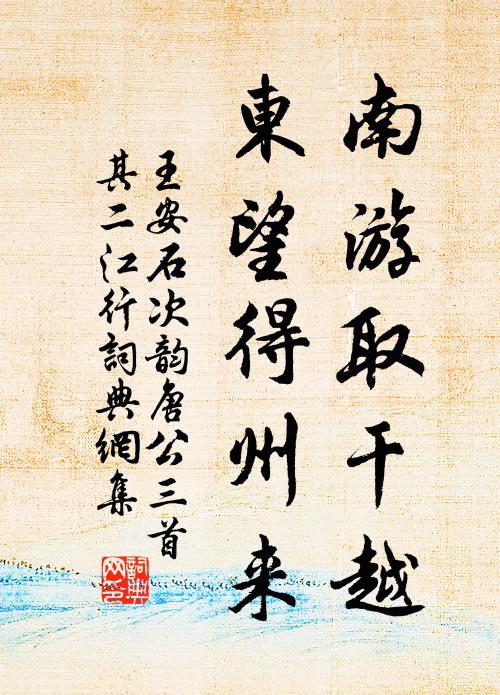 南游取干越
東望得州来
王安石次韵唐公三首
其二江行詞典網集
詞典
网